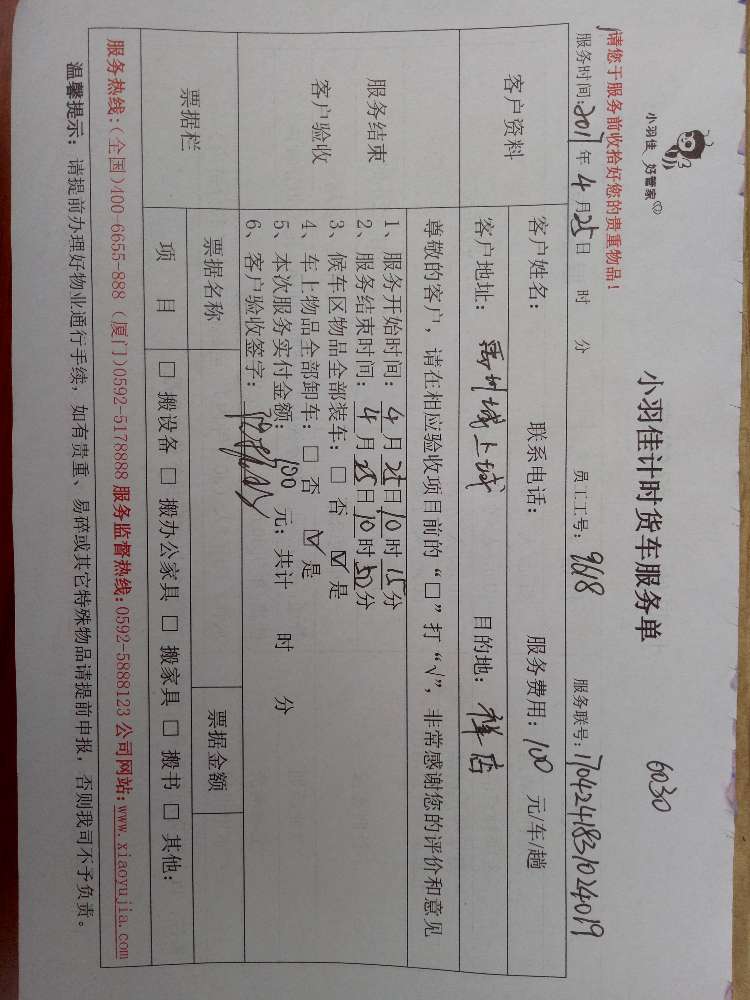 小羽佳 好管家
小羽佳计时货车服务单
6030
请您于服务前收拾好您的贵重物品!
服务时间:2017年4月25日 时 分 员工工号:9618 服务联号:1704241831024019
客户资料
客户姓名: 联系电话: 服务费用:100元/车/趟
客户地址:禹州城上城 目的地:祥店
服务结束
客户验收
尊敬的客户,请在相应验收项目前的“□”打“√”,非常感谢您的评价和意见
1、服务开始时间:4月25日10时15分
2、服务结束时间:4月25日10时50分
3、候车区物品全部装车:□ 否 ☑ 是
4、车上物品全部卸车:□ 否 ☑ 是
5、本次服务实付金额:100元;共计 时 分
6、客户验收签字:
票据栏
票据名称 票据金额
项 目 □ 搬设备 □ 搬办公家具 □ 搬家具 □ 搬书 □ 其他:
服务热线:(全国)400-6655-888 (厦门)0592-5178888 服务监督热线:0592-5888123 公司网站:www.xiaoyujia.com
温馨提示:请提前办理好物业通行手续,如有贵重、易碎或其它特殊物品请提前申报,否则我司不予负责。